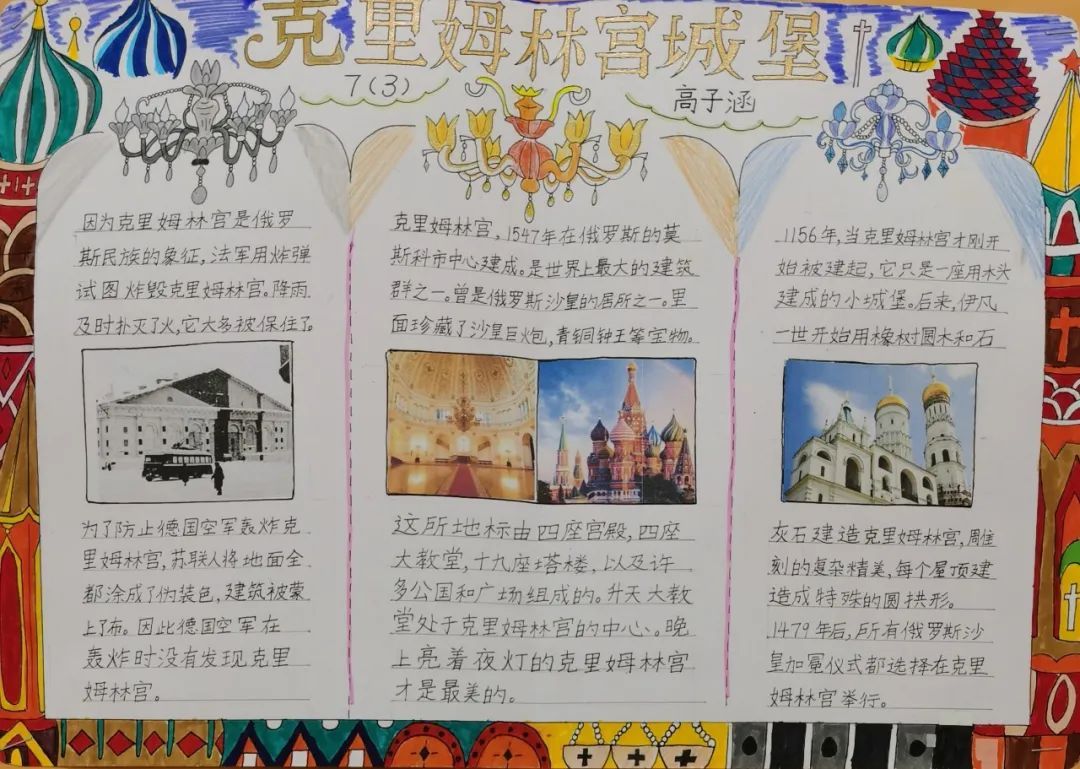 克里姆林宫城堡
7(3)
高子涵
因为克里姆林宫是俄罗
斯民族的象征，法军用炸弹
试图炸毁克里姆林宫。降雨
及时扑灭了火，它大多被保住了。
为了防止德国空军轰炸克
里姆林宫，苏联人将地面全
都涂成了伪装色，建筑被蒙
上了布。因此德国空军在
轰炸时没有发现克里
姆林宫。
克里姆林宫，1547年在俄罗斯的莫
斯科市中心建成。是世界上最大的建筑
群之一。曾是俄罗斯沙皇的居所之一。里
面珍藏了沙皇巨炮，青铜钟王等宝物。
这所地标由四座宫殿，四座
大教堂，十九座塔楼，以及许
多公国和广场组成的。升天大教
堂处于克里姆林宫的中心。晚
上亮着夜灯的克里姆林宫
才是最美的。
1156年，当克里姆林宫才刚开
始被建起，它只是一座用木头
建成的小城堡。后来，伊凡
一世开始用橡树圆木和石
灰石建造克里姆林宫，雕
刻的复杂精美，每个屋顶建
造成特殊的圆拱形。
1479年后，所有俄罗斯沙
皇加冕仪式都选择在克里
姆林宫举行。